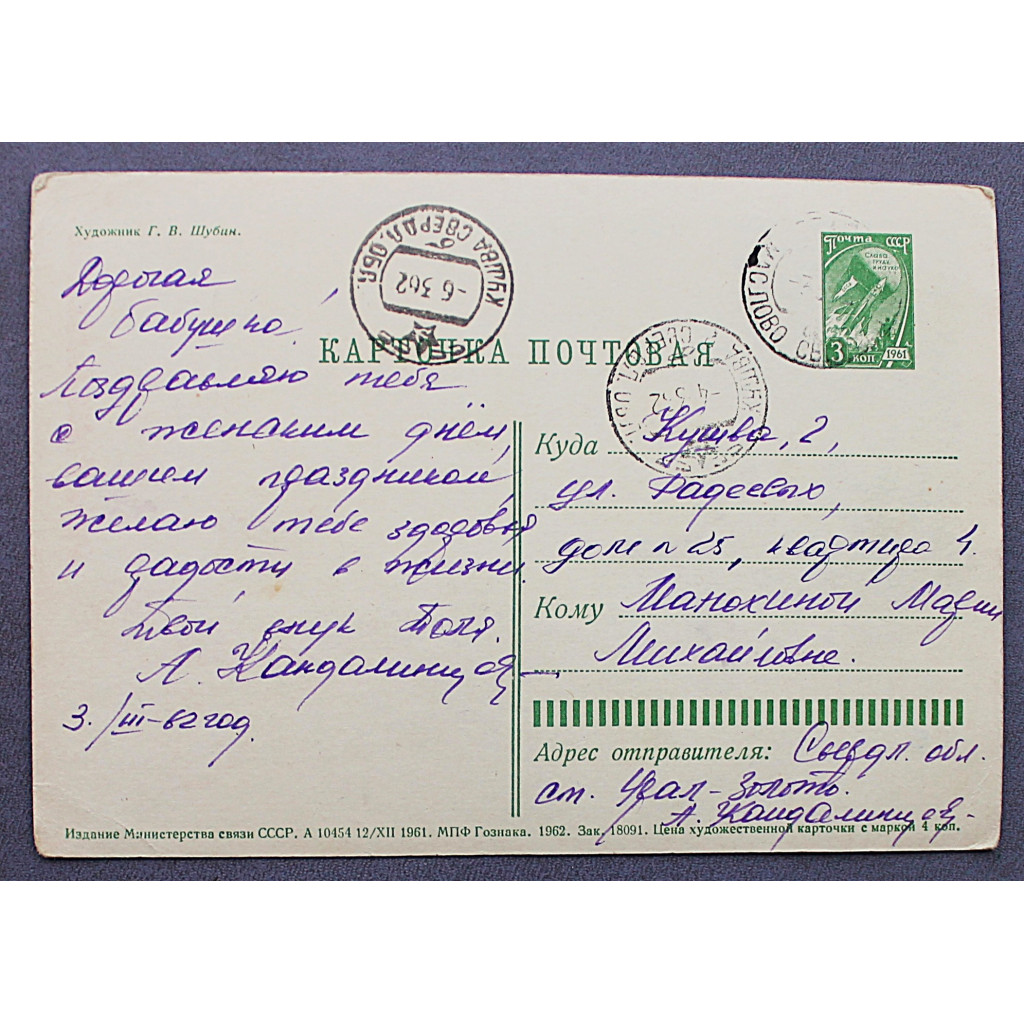 Художник Г. В. Шубин.
Дорогая
бабушка!
Поздравляю тебя
с женским днём,
вашим праздником,
желаю тебе здоровья
и радости в жизни
Твой внук Толя.
А.
3./III-62 год.
КАРТОЧКА ПОЧТОВАЯ
КУШВА СВЕРДЛ. ОБЛ.
-6 3 62
КУШВА
-4 3 62
МАСЛОВО
ПОЧТА СССР
СЛАВА ТРУДУ И НАУКЕ
3 КОП 1961
Куда Кушва, 2,
ул. Фадеевых,
дом № 25, квартира 1.
Кому Манохиной Марии
Михайловне.
Адрес отправителя: Свердл. обл.
ст. Урал-Золото.
А.
Издание Министерства связи СССР. А 10454 12/XII 1961. МПФ Гознака. 1962. Зак. 18091. Цена художественной карточки с маркой 4 коп.